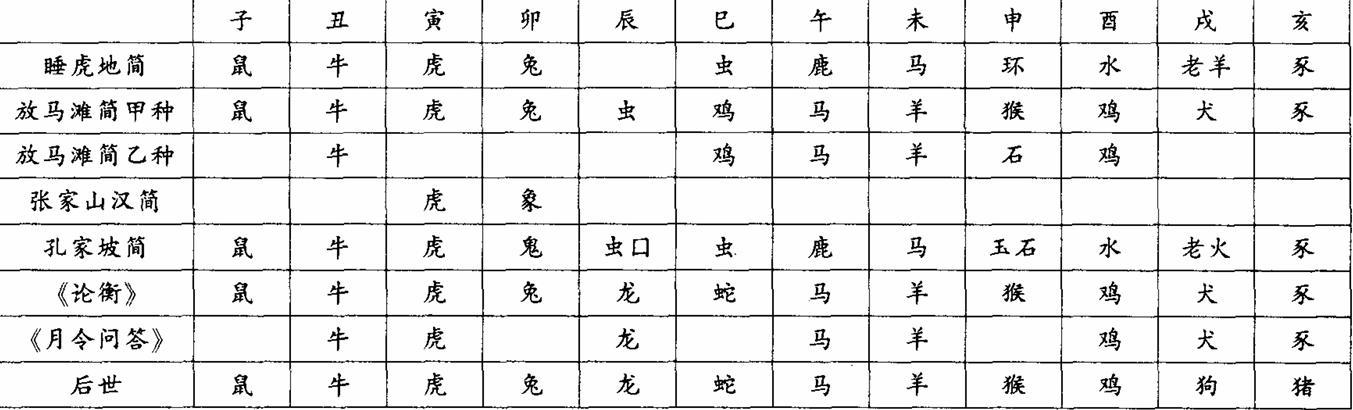 子 丑 寅 卯 辰 巳 午 未 申 酉 戌 亥
睡虎地简 鼠 牛 虎 兔 虫 鹿 马 环 水 老羊 豕
放马滩简甲种 鼠 牛 虎 兔 虫 鸡 马 羊 猴 鸡 犬 豕
放马滩简乙种 牛 鸡 马 羊 石 鸡
张家山汉简 虎 象
孔家坡简 鼠 牛 虎 鬼 虫口 虫 鹿 马 玉石 水 老火 豕
《论衡》 鼠 牛 虎 兔 龙 蛇 马 羊 猴 鸡 犬 豕
《月令问答》 牛 虎 龙 马 羊 鸡 犬 豕
后世 鼠 牛 虎 兔 龙 蛇 马 羊 猴 鸡 狗 猪